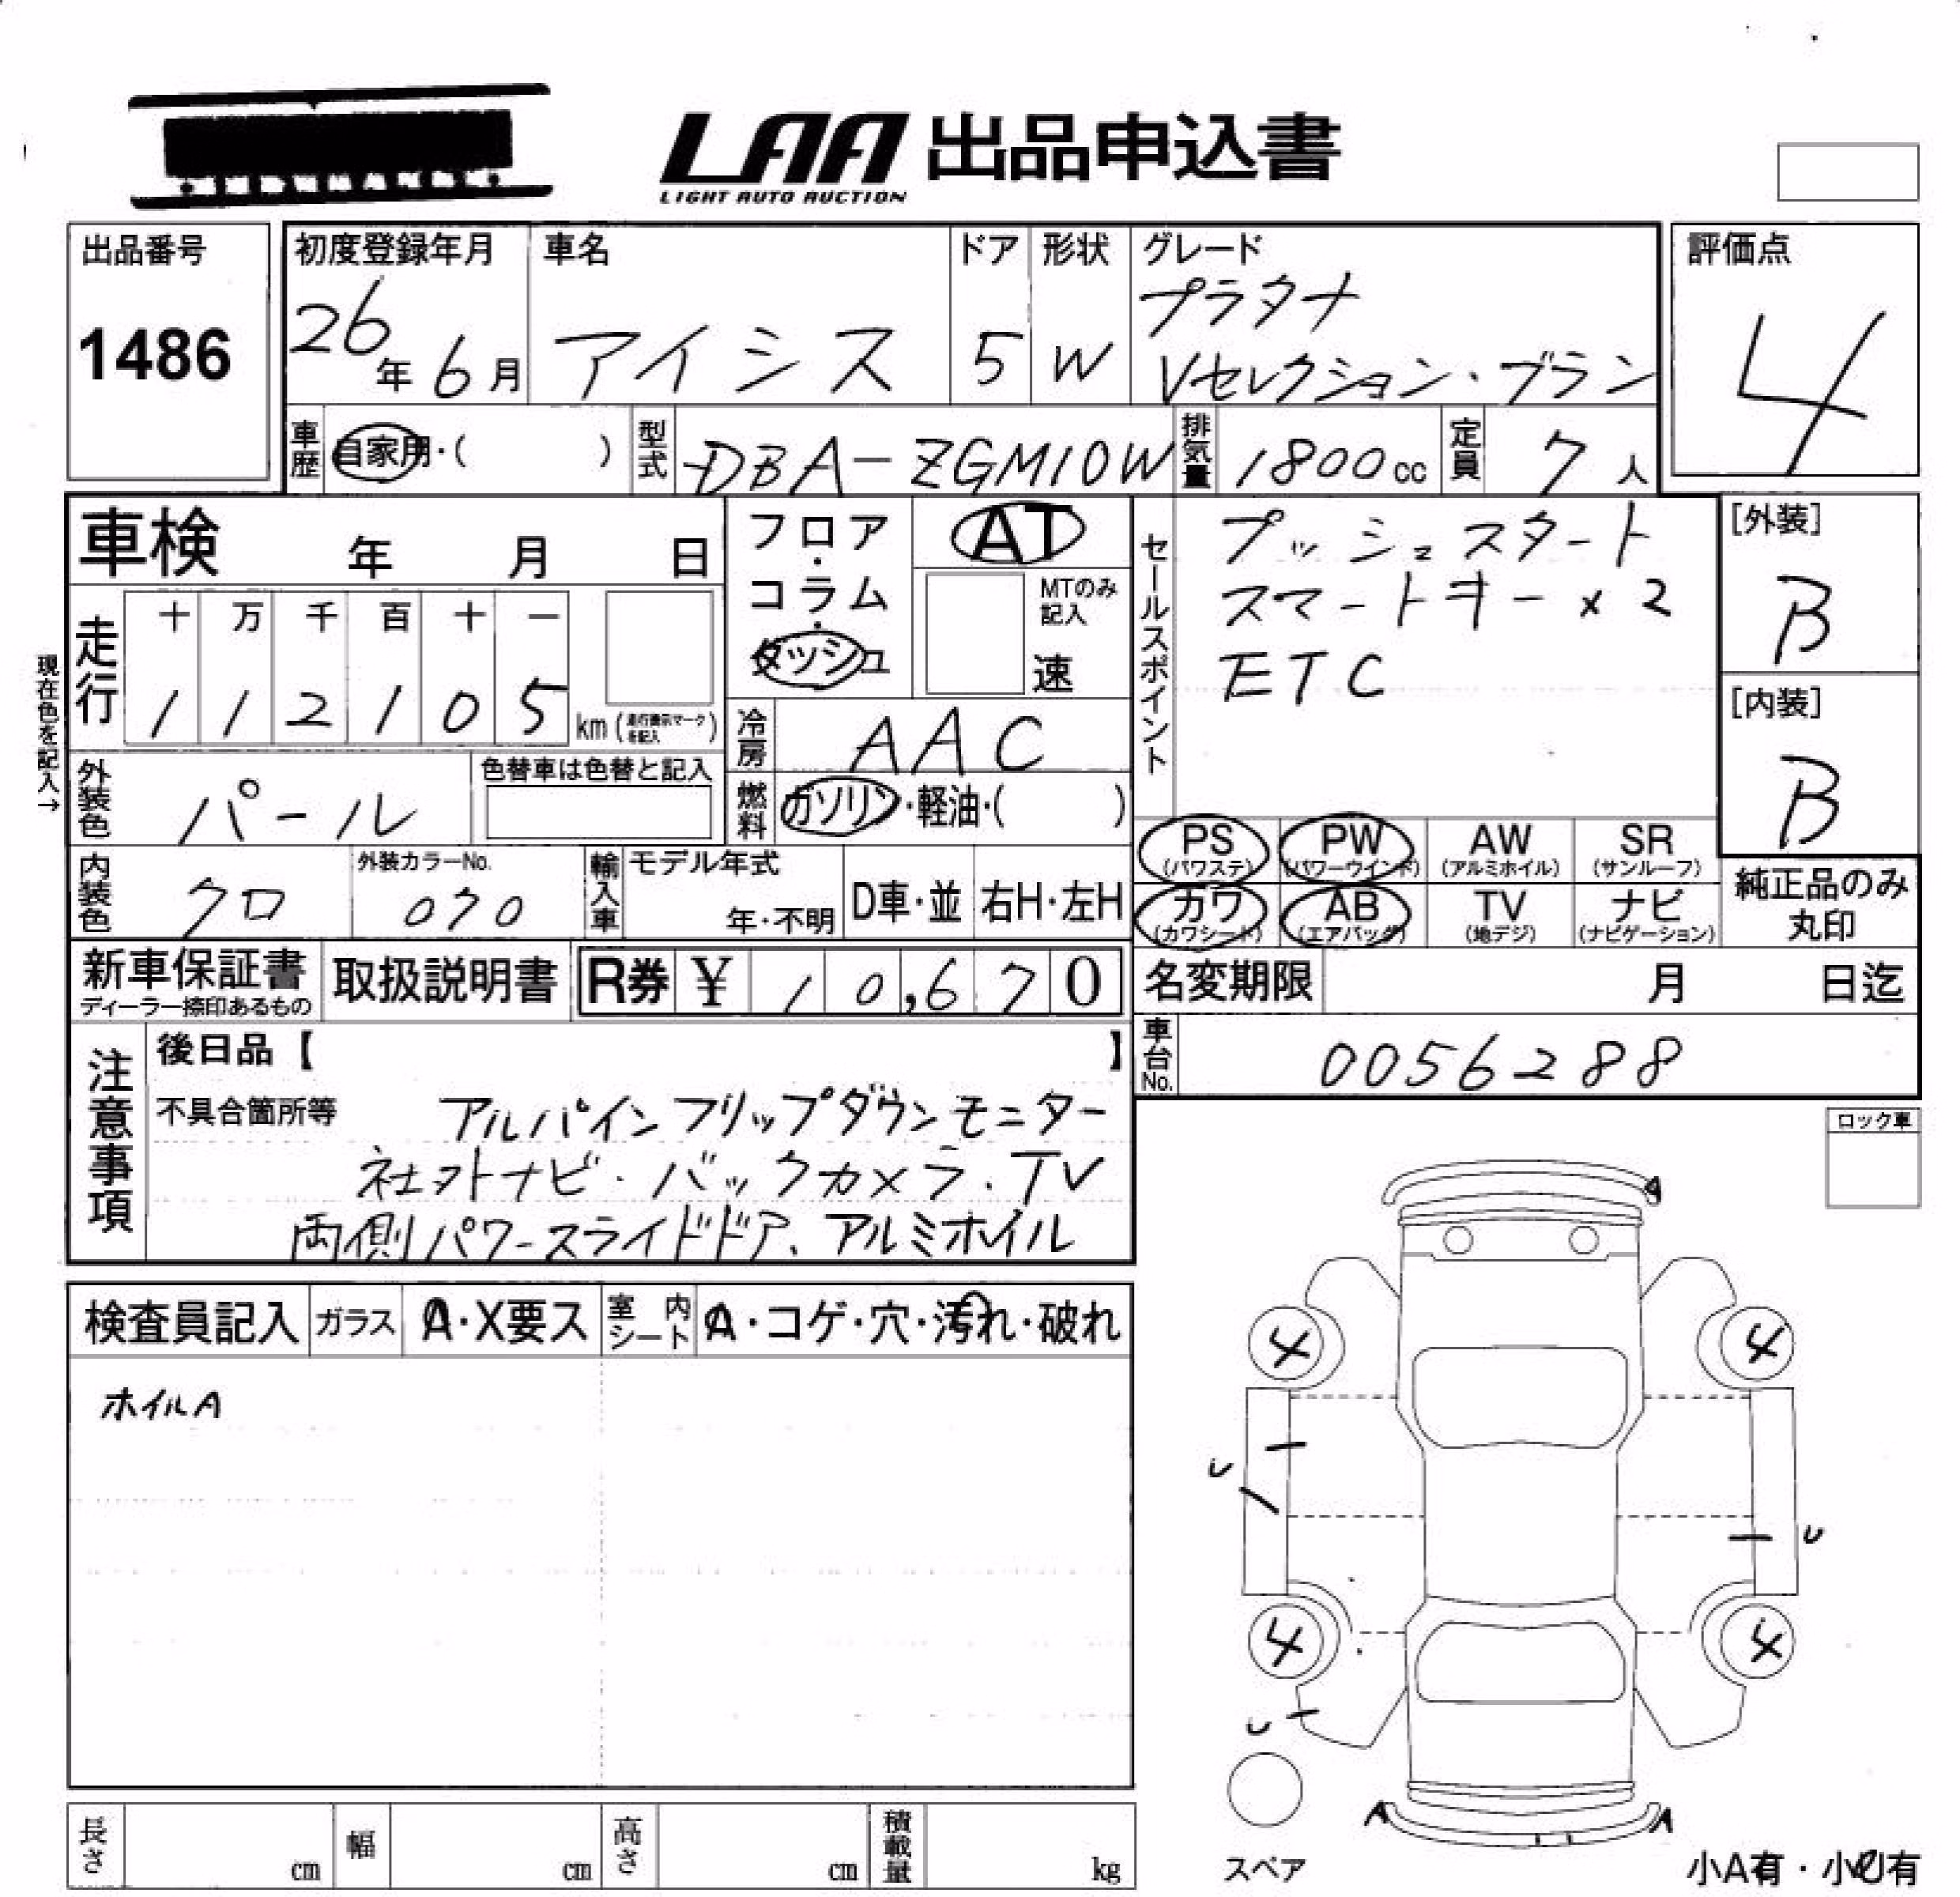 LAA 出品申込書
LIGHT AUTO AUCTION
出品番号
1486
初度登録年月
26年 6月
車名
アイシス
ドア
5
形状
W
グレード
プラタナ
Vセレクション・ブラン
評価点
4
車歴
自家用・( )
型式
DBA-ZGM10W
排気量
1800cc
定員
7人
車検 年 月 日
フロア・コラム・ダッシュ
AT
MTのみ記入
速
セールスポイント
プッシュスタート
スマートキー×2
ETC
[外装]
B
[内装]
B
現在色を記入→
走行
十 万 千 百 十 一
1 1 2 1 0 5 km (走行表示マークを記入)
冷房
AAC
外装色
パール
色替車は色替と記入
燃料
ガソリン・軽油・( )
PS (パワステ)
PW (パワーウインド)
AW (アルミホイル)
SR (サンルーフ)
カワ (カワシート)
AB (エアバッグ)
TV (地デジ)
ナビ (ナビゲーション)
純正品のみ
丸印
内装色
クロ
外装カラーNo.
070
輸入車
モデル年式
年・不明
D車・並
右H・左H
新車保証書
ディーラー捺印あるもの
取扱説明書
R券 ¥ 10,670
名変期限 月 日迄
車台No.
0056288
注意事項
後日品【 】
不具合箇所等
アルパインフリップダウンモニター
社外ナビ・バックカメラ・TV
両側パワースライドドア、アルミホイル
ロック車
検査員記入
ガラス
A・X要ス
室内シート
A・コゲ・穴・汚れ・破れ
ホイルA
A
4 4
U
U
4 4
U
A A
スペア
小A有・小U有
長さ cm
幅 cm
高さ cm
積載量 kg